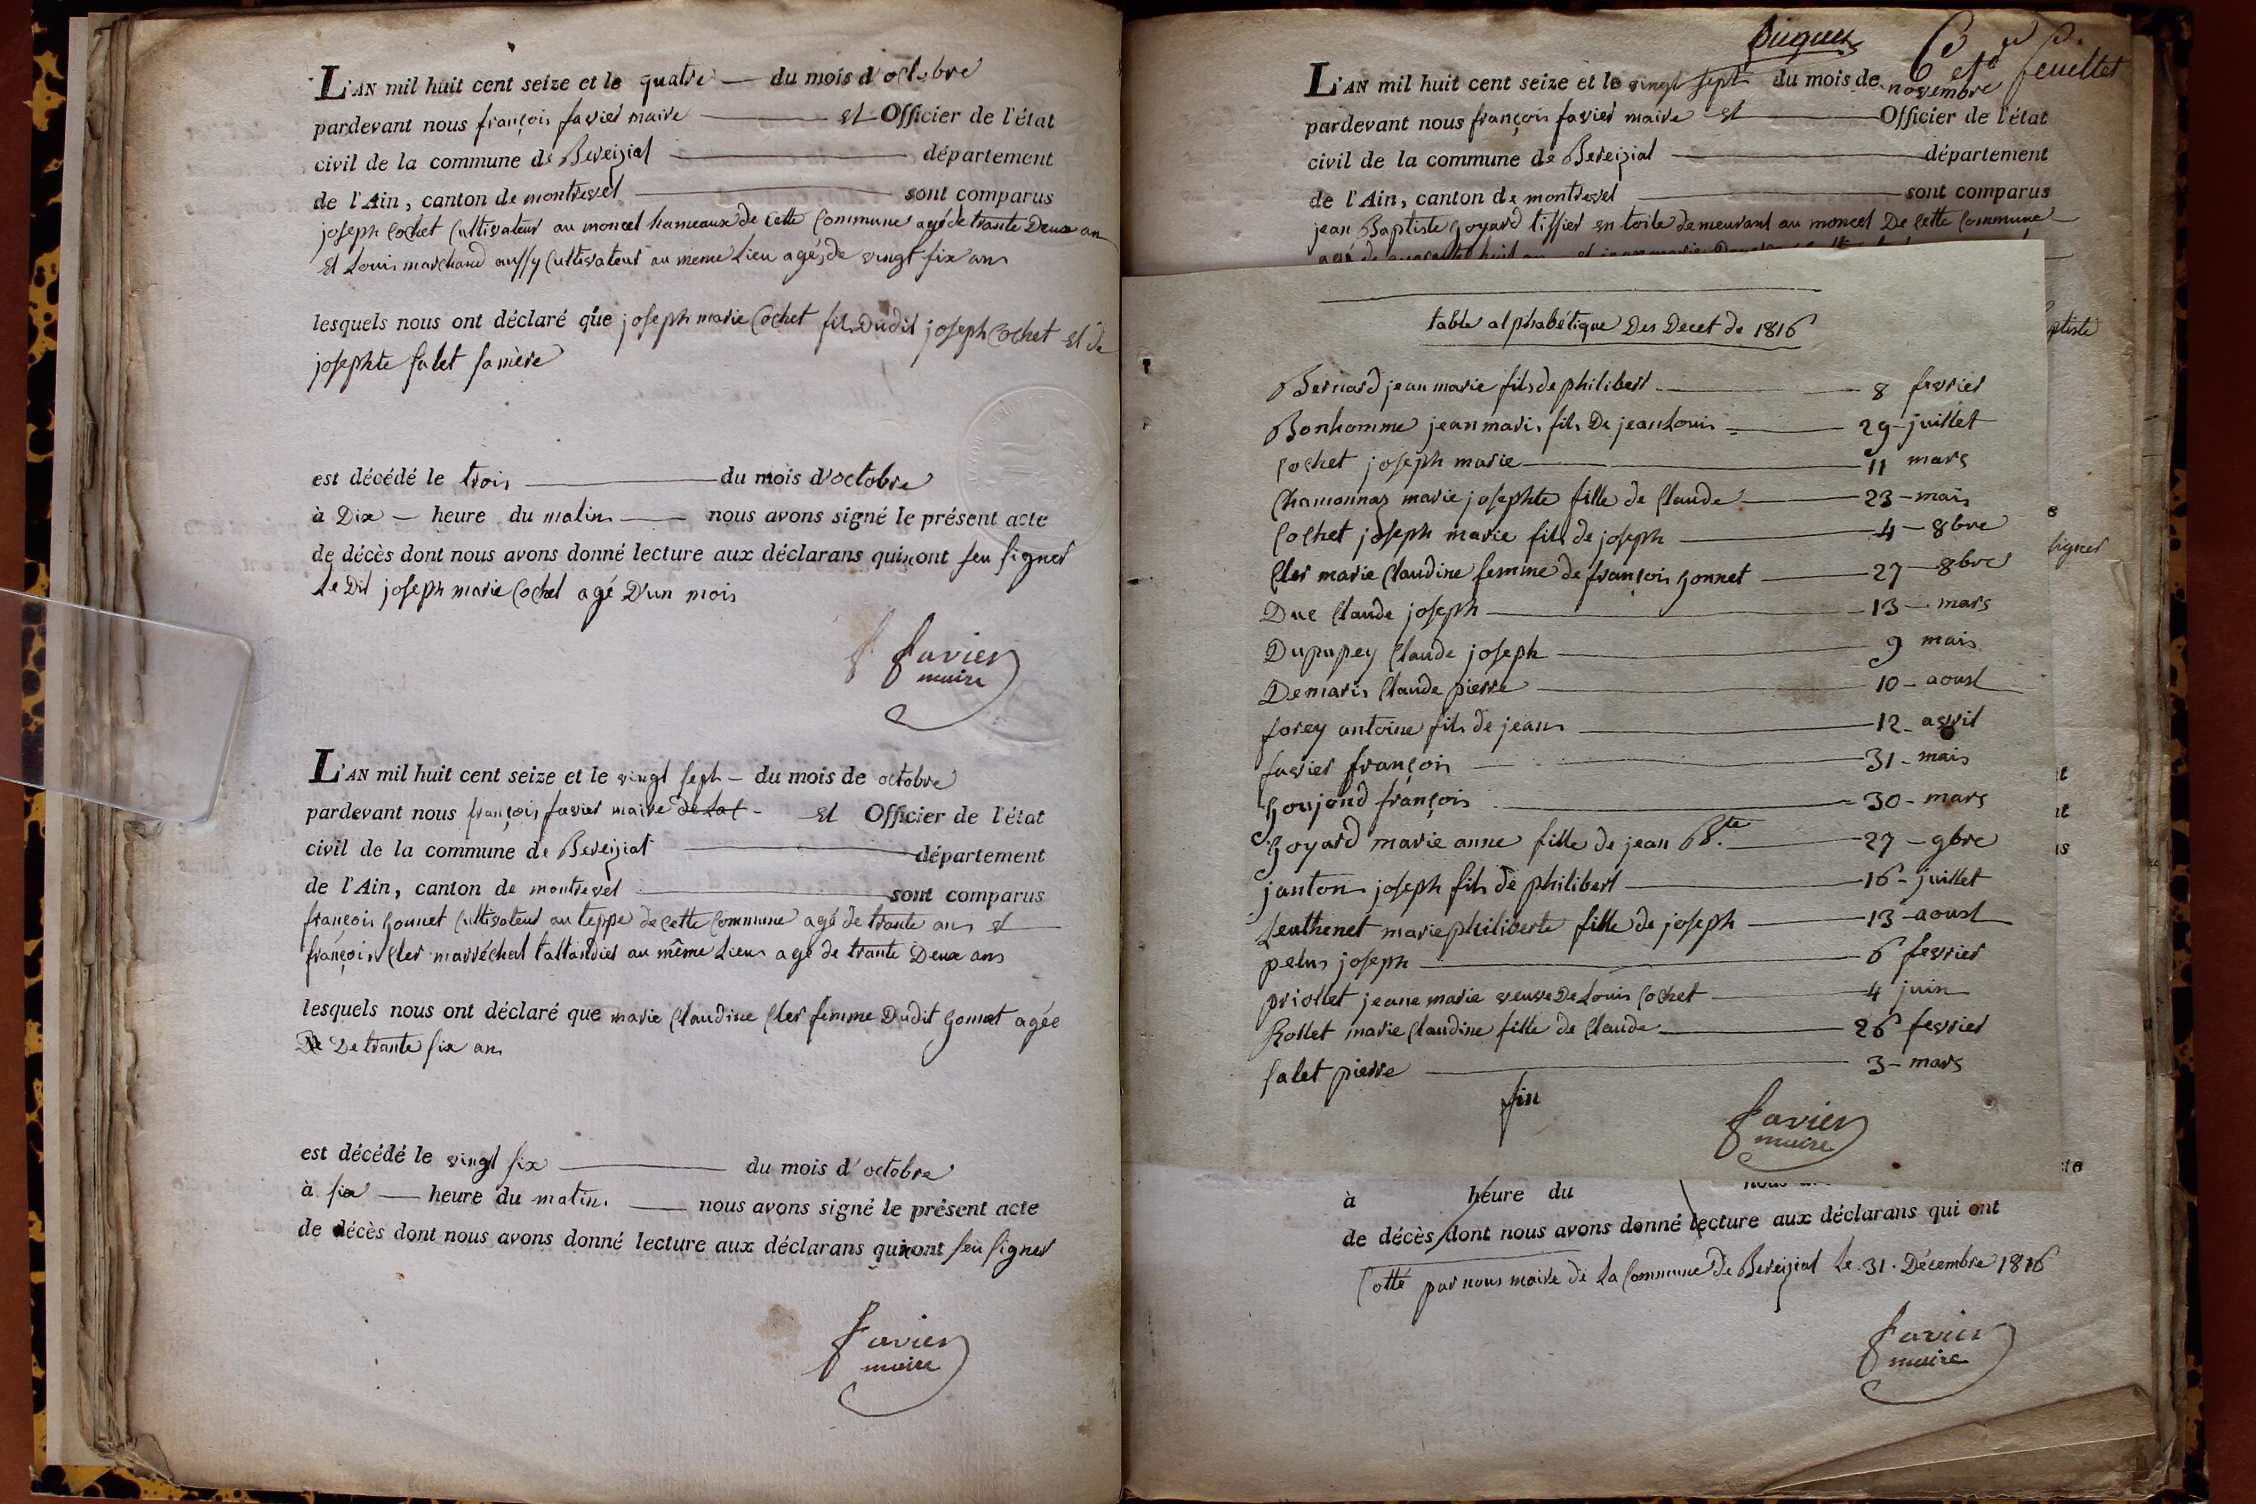 L'AN mil huit cent seize et le quatre du mois d'octobre
pardevant nous françois favier maire et Officier de l'état
civil de la commune de Bereiziat département
de l'Ain, canton de montrevel sont comparus
joseph Cochet Cultivateur au moncel hameaux de Cette Commune agé de trante Deux an
et Louis marchand aussy Cultivateur au meme Lieu agés de vingt six ans
lesquels nous ont déclaré que joseph marie Cochet fils Dudit joseph Cochet et de
josephte salet sa mère
est décédé le trois du mois d'octobre
à Dix heure du matin nous avons signé le présent acte
de décès dont nous avons donné lecture aux déclarans qui n'ont seu signer
Le Dit joseph marie Cochet agé D'un mois
f favier
maire
L'AN mil huit cent seize et le vingt sept du mois de octobre
pardevant nous françois favier maire et Officier de l'état
civil de la commune de Bereiziat département
de l'Ain, canton de montrevel sont comparus
françois Gonnet Cultivateur au teppe de Cette Commune agé de trante ans et
françois Cler marréchal tallandier au même Lieu agé de trante Deux ans
lesquels nous ont déclaré que marie Claudine Cler femme Dudit Gonnet agée
De trante six ans
est décédé le vingt six du mois d'octobre
à six heure du matin nous avons signé le présent acte
de décès dont nous avons donné lecture aux déclarans qui n'ont seu signer
favier
maire
6 et d. feuillet
L'AN mil huit cent seize et le vingt sept du mois de novembre
pardevant nous françois favier maire et Officier de l'état
civil de la commune de Bereiziat département
de l'Ain, canton de montrevel sont comparus
jean Baptiste Goyard tissier en toile demeurant au moncel De Cette Commune
table alphabétique Des Decet de 1816
Bernard jean marie fils de philibert 8 fevrier
Bonhomme jean marie fils De jean Louis 29 juillet
Cochet joseph marie 11 mars
Chamonnas marie josephte fille de Claude 23 mais
Cochet joseph marie fils de joseph 4 8bre
Cler marie Claudine femme de françois Gonnet 27 8bre
Duc Claude joseph 13 mars
Dupupey Claude joseph 9 mais
Demaris Claude pierre 10 aoust
forey antoine fils de jean 12 avril
favier françois 31 mais
Goujond françois 30 mars
Goyard marie anne fille de jean Bte 27 9bre
janton joseph fils de philibert 16 juillet
Leuthenet marie philiberte fille de joseph 13 aoust
pelus joseph 6 fevrier
priollet jeane marie veuve De Louis Cochet 4 juin
Rollet marie Claudine fille de Claude 26 fevrier
salet pierre 3 mars
fin
favier
maire
à heure du
de décès dont nous avons donné lecture aux déclarans qui ont
Cotté par nous maire de La Commune de Bereiziat Le 31 Décembre 1816
favier
maire